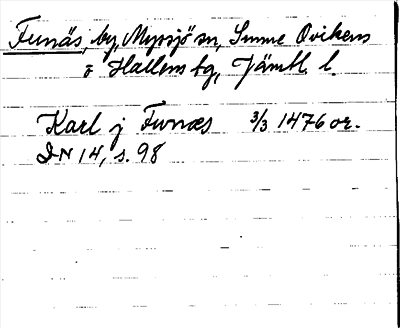 Funäs, by, Myssjö sn, Sunne Ovikens
o Hallens tg, Jämtl. l.
Karl j Funæs 3/3 1476 or.
DN 14, s. 98